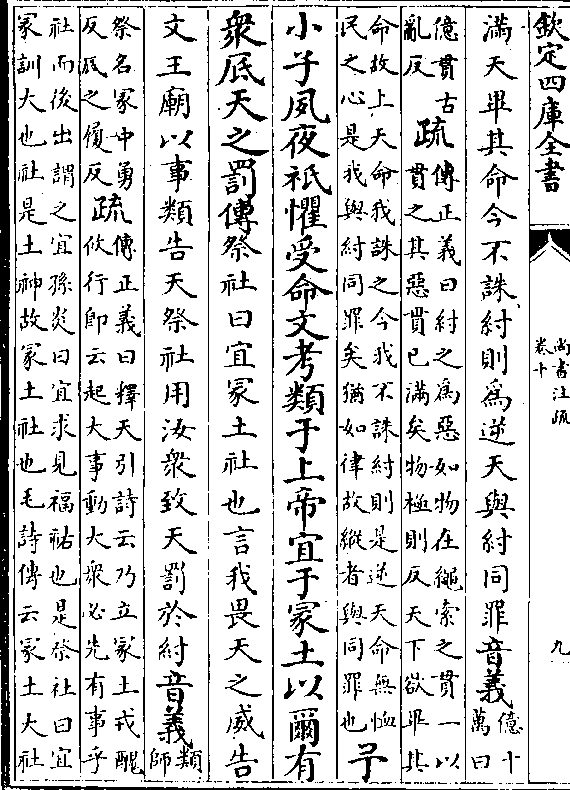 欽定四庫全書
尚書注疏
卷十
九
滿天畢其命今不誅紂則為逆天與紂同罪音義億十
萬曰
億貫古
亂反
疏傳正義曰紂之為惡如物在繩索之貫一以
貫之其惡貫已滿矣物極則反天下欲畢其
命故上天命我誅之今我不誅紂則是逆天命無恤
民之心是我與紂同罪矣猶如律故縱者與同罪也
予
小子夙夜祇懼受命文考類于上帝宜于冢土以爾有
眾厎天之罰傳祭社曰宜冢土社也言我畏天之威告
文王廟以事類告天祭社用汝眾致天罰於紂音義類
師
祭名冢中勇
反厎之履反
疏傳正義曰釋天引詩云乃立冢土戎醜
攸行即云起大事動大眾必先有事乎
社而後出謂之宜孫炎曰宜求見福祐也是祭社曰宜
冢訓大也社是土神故冢土社也毛詩傳云冢土大社